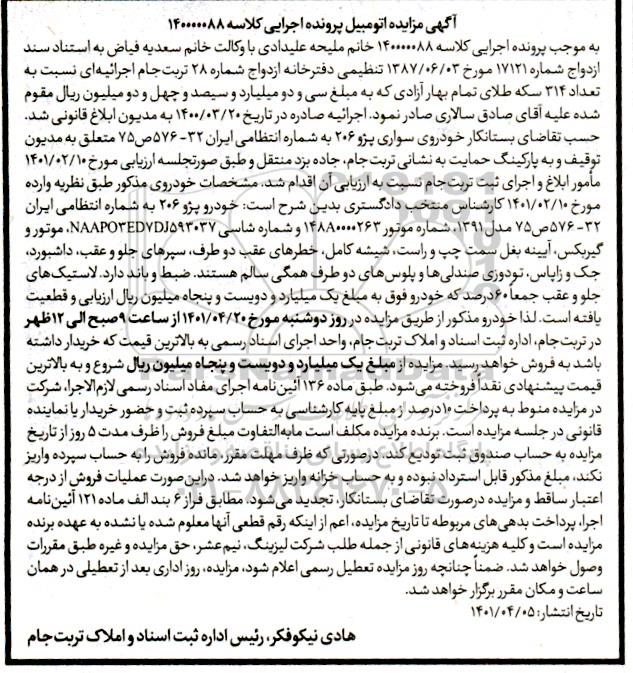 آگهی مزایده اتومبیل پرونده اجرایی کلاسه ۱۴۰۰۰۰۰۸۸
به موجب پرونده اجرایی کلاسه ۱۴۰۰۰۰۰۸۸ خانم ملیحه علیدادی با وکالت خانم سعدیه فیاض به استناد سند
ازدواج شماره ۱۷۱۲۱ مورخ ۱۳۸۷/۰۶/۰۳ تنظیمی دفترخانه ازدواج شماره ۲۸ تربت‌جام اجرائیه‌ای نسبت به
تعداد ۳۱۴ سکه طلای تمام بهار آزادی که به مبلغ سی و دو میلیارد و سیصد و چهل و دو میلیون ریال مقوم
شده علیه آقای صادق سالاری صادر نمود. اجرائیه صادره در تاریخ ۱۴۰۰/۰۳/۲۰ به مدیون ابلاغ قانونی شد.
حسب تقاضای بستانکار خودروی سواری پژو ۲۰۶ به شماره انتظامی ایران ۳۲-۵۷۶ص۷۵ متعلق به مدیون
توقیف و به پارکینگ حمایت به نشانی تربت‌جام، جاده یزد منتقل و طبق صورتجلسه ارزیابی مورخ ۱۴۰۱/۰۲/۱۰
مأمور ابلاغ و اجرای ثبت تربت‌جام نسبت به ارزیابی آن اقدام شد. مشخصات خودروی مذکور طبق نظریه وارده
مورخ ۱۴۰۱/۰۲/۱۰ کارشناس منتخب دادگستری بدین شرح است: خودرو پژو ۲۰۶ به شماره انتظامی ایران
۳۲-۵۷۶ص۷۵ مدل ۱۳۹۱، شماره موتور ۱۴۸A۰۰۰۰۲۶۳ و شماره شاسی NAAP۰۳ED۷DJ۵۹۳۰۳۷، موتور و
گیربکس، آیینه بغل سمت چپ و راست، شیشه کامل، خطرهای عقب دو طرف، سپرهای جلو و عقب، داشبورد،
جک و زاپاس، تودوزی صندلی‌ها و پلوس‌های دو طرف همگی سالم هستند. ضبط و باند دارد. لاستیک‌های
جلو و عقب جمعاً ۶۰درصد که خودرو فوق به مبلغ یک میلیارد و دویست و پنجاه میلیون ریال ارزیابی و قطعیت
یافته است. لذا خودرو مذکور از طریق مزایده در روز دوشنبه مورخ ۱۴۰۱/۰۴/۲۰ از ساعت ۹ صبح الی ۱۲ ظهر
در تربت‌جام، اداره ثبت اسناد و املاک تربت‌جام، واحد اجرای اسناد رسمی به بالاترین قیمت که خریدار داشته
باشد به فروش خواهد رسید. مزایده از مبلغ یک میلیارد و دویست و پنجاه میلیون ریال شروع و به بالاترین
قیمت پیشنهادی نقداً فروخته می‌شود. طبق ماده ۱۳۶ آئین‌نامه اجرای مفاد اسناد رسمی لازم‌الاجرا، شرکت
در مزایده منوط به پرداخت ۱۰درصد از مبلغ پایه کارشناسی به حساب سپرده ثبت و حضور خریدار یا نماینده
قانونی در جلسه مزایده است. برنده مزایده مکلف است مابه‌التفاوت مبلغ فروش را ظرف مدت ۵ روز از تاریخ
مزایده به حساب صندوق ثبت تودیع کند. درصورتی که ظرف مهلت مقرر مانده فروش را به حساب سپرده واریز
نکند، مبلغ مذکور قابل استرداد نبوده و به حساب خزانه واریز خواهد شد. دراین‌صورت عملیات فروش از درجه
اعتبار ساقط و مزایده درصورت تقاضای بستانکار، تجدید می‌شود. مطابق فراز ۶ بند الف ماده ۱۲۱ آئین‌نامه
اجرا، پرداخت بدهی‌های مربوطه تا تاریخ مزایده، اعم از اینکه رقم قطعی آنها معلوم شده یا نشده به عهده برنده
مزایده است و کلیه هزینه‌های قانونی از جمله طلب شرکت لیزینگ، نیم‌عشر، حق مزایده و غیره طبق مقررات
وصول خواهد شد. ضمناً چنانچه روز مزایده تعطیل رسمی اعلام شود، مزایده، روز اداری بعد از تعطیلی در همان
ساعت و مکان مقرر برگزار خواهد شد.
تاریخ انتشار: ۱۴۰۱/۰۴/۰۵
هادی نیکوفکر، رئیس اداره ثبت اسناد و املاک تربت‌جام